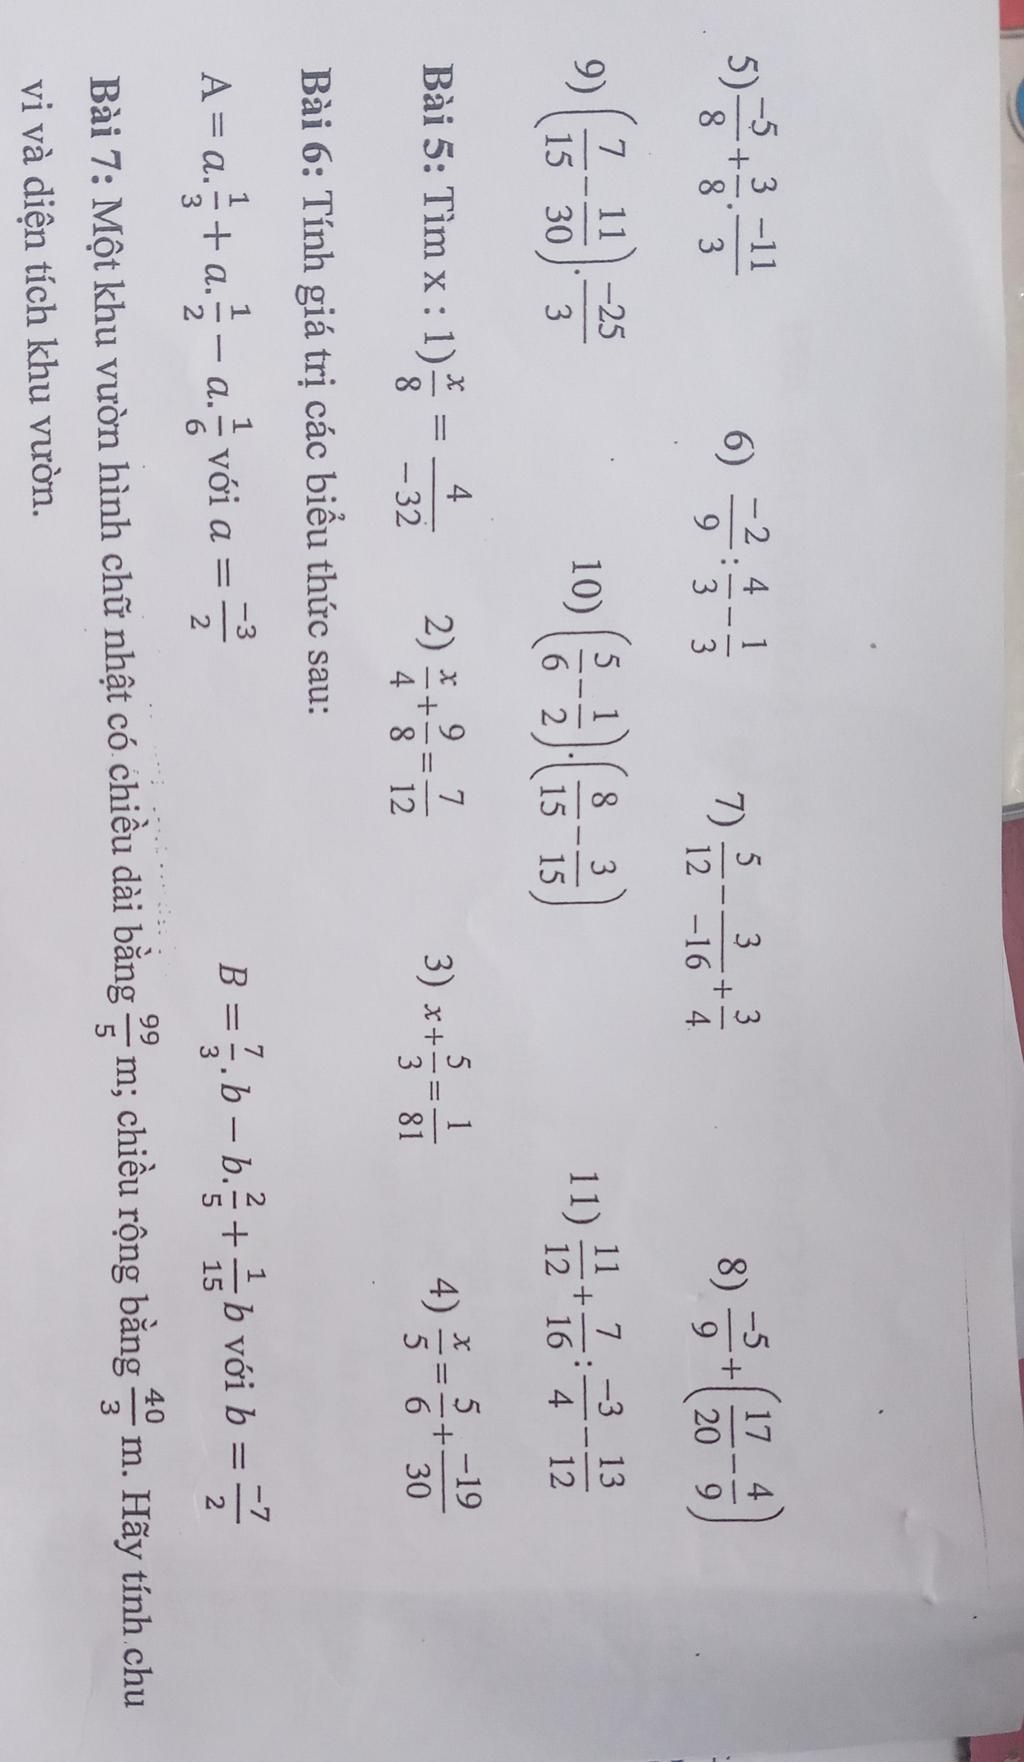 5) -5/8 + 3/8 . -11/3 6) -2/9 : 4/3 - 1/3 7) 5/12 - 3/-16 + 3/4 8) -5/9 + (17/20 - 4/9)
9) (7/15 - 11/30) . -25/3 10) (5/6 - 1/2) . (8/15 - 3/15) 11) 11/12 + 7/16 : -3/4 - 13/12
Bài 5: Tìm x : 1) x/8 = 4/-32 2) x/4 + 9/8 = 7/12 3) x + 5/3 = 1/81 4) x/5 = 5/6 + -19/30
Bài 6: Tính giá trị các biểu thức sau:
A = a. 1/3 + a. 1/2 - a. 1/6 với a = -3/2 B = 7/3 . b - b. 2/5 + 1/15 b với b = -7/2
Bài 7: Một khu vườn hình chữ nhật có chiều dài bằng 99/5 m; chiều rộng bằng 40/3 m. Hãy tính chu
vi và diện tích khu vườn.